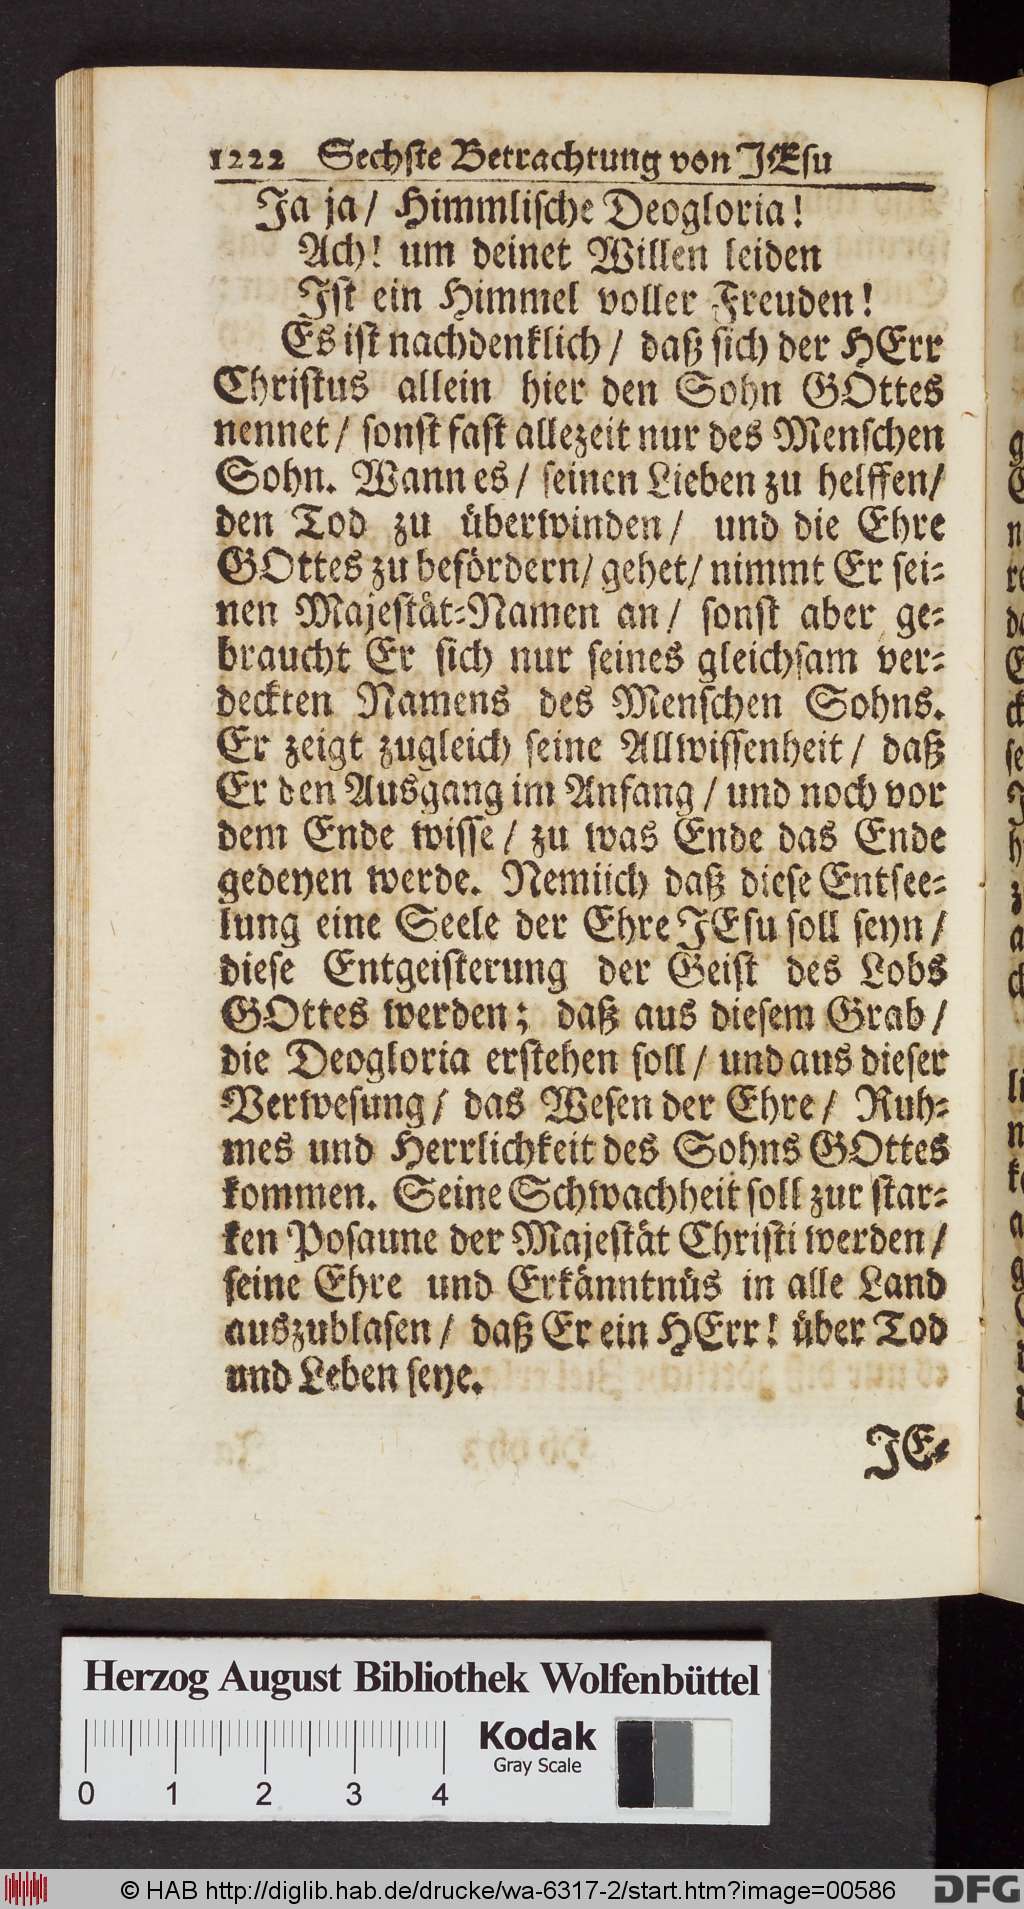 1222 Sechste Betrachtung von JEsu
Ja ja/ Himmlische Deogloria!
Ach! um deinet Willen leiden
Ist ein Himmel voller Freuden!
Es ist nachdenklich/ daß sich der HErr
Christus allein hier den Sohn GOttes
nennet/ sonst fast allezeit nur des Menschen
Sohn. Wann es/ seinen Lieben zu helffen/
den Tod zu überwinden/ und die Ehre
GOttes zu befördern/ gehet/ nimmt Er sei-
nen Majestät-Namen an/ sonst aber ge-
braucht Er sich nur seines gleichsam ver-
deckten Namens des Menschen Sohns.
Er zeigt zugleich seine Allwissenheit/ daß
Er den Ausgang im Anfang/ und noch vor
dem Ende wisse/ zu was Ende das Ende
gedeyen werde. Nemiich daß diese Entsee-
lung eine Seele der Ehre JEsu soll seyn/
diese Entgeisterung der Geist des Lobs
GOttes werden; daß aus diesem Grab/
die Deogloria erstehen soll/ und aus dieser
Verwesung/ das Wesen der Ehre/ Ruh-
mes und Herrlichkeit des Sohns GOttes
kommen. Seine Schwachheit soll zur star-
ken Posaune der Majestät Christi werden/
seine Ehre und Erkänntnüs in alle Land
auszublasen/ daß Er ein HErr! über Tod
und Leben seye.
JE-
Herzog August Bibliothek Wolfenbüttel
Kodak
Gray Scale
0 1 2 3 4
© HAB http://diglib.hab.de/drucke/wa-6317-2/start.htm?image=00586
DFG